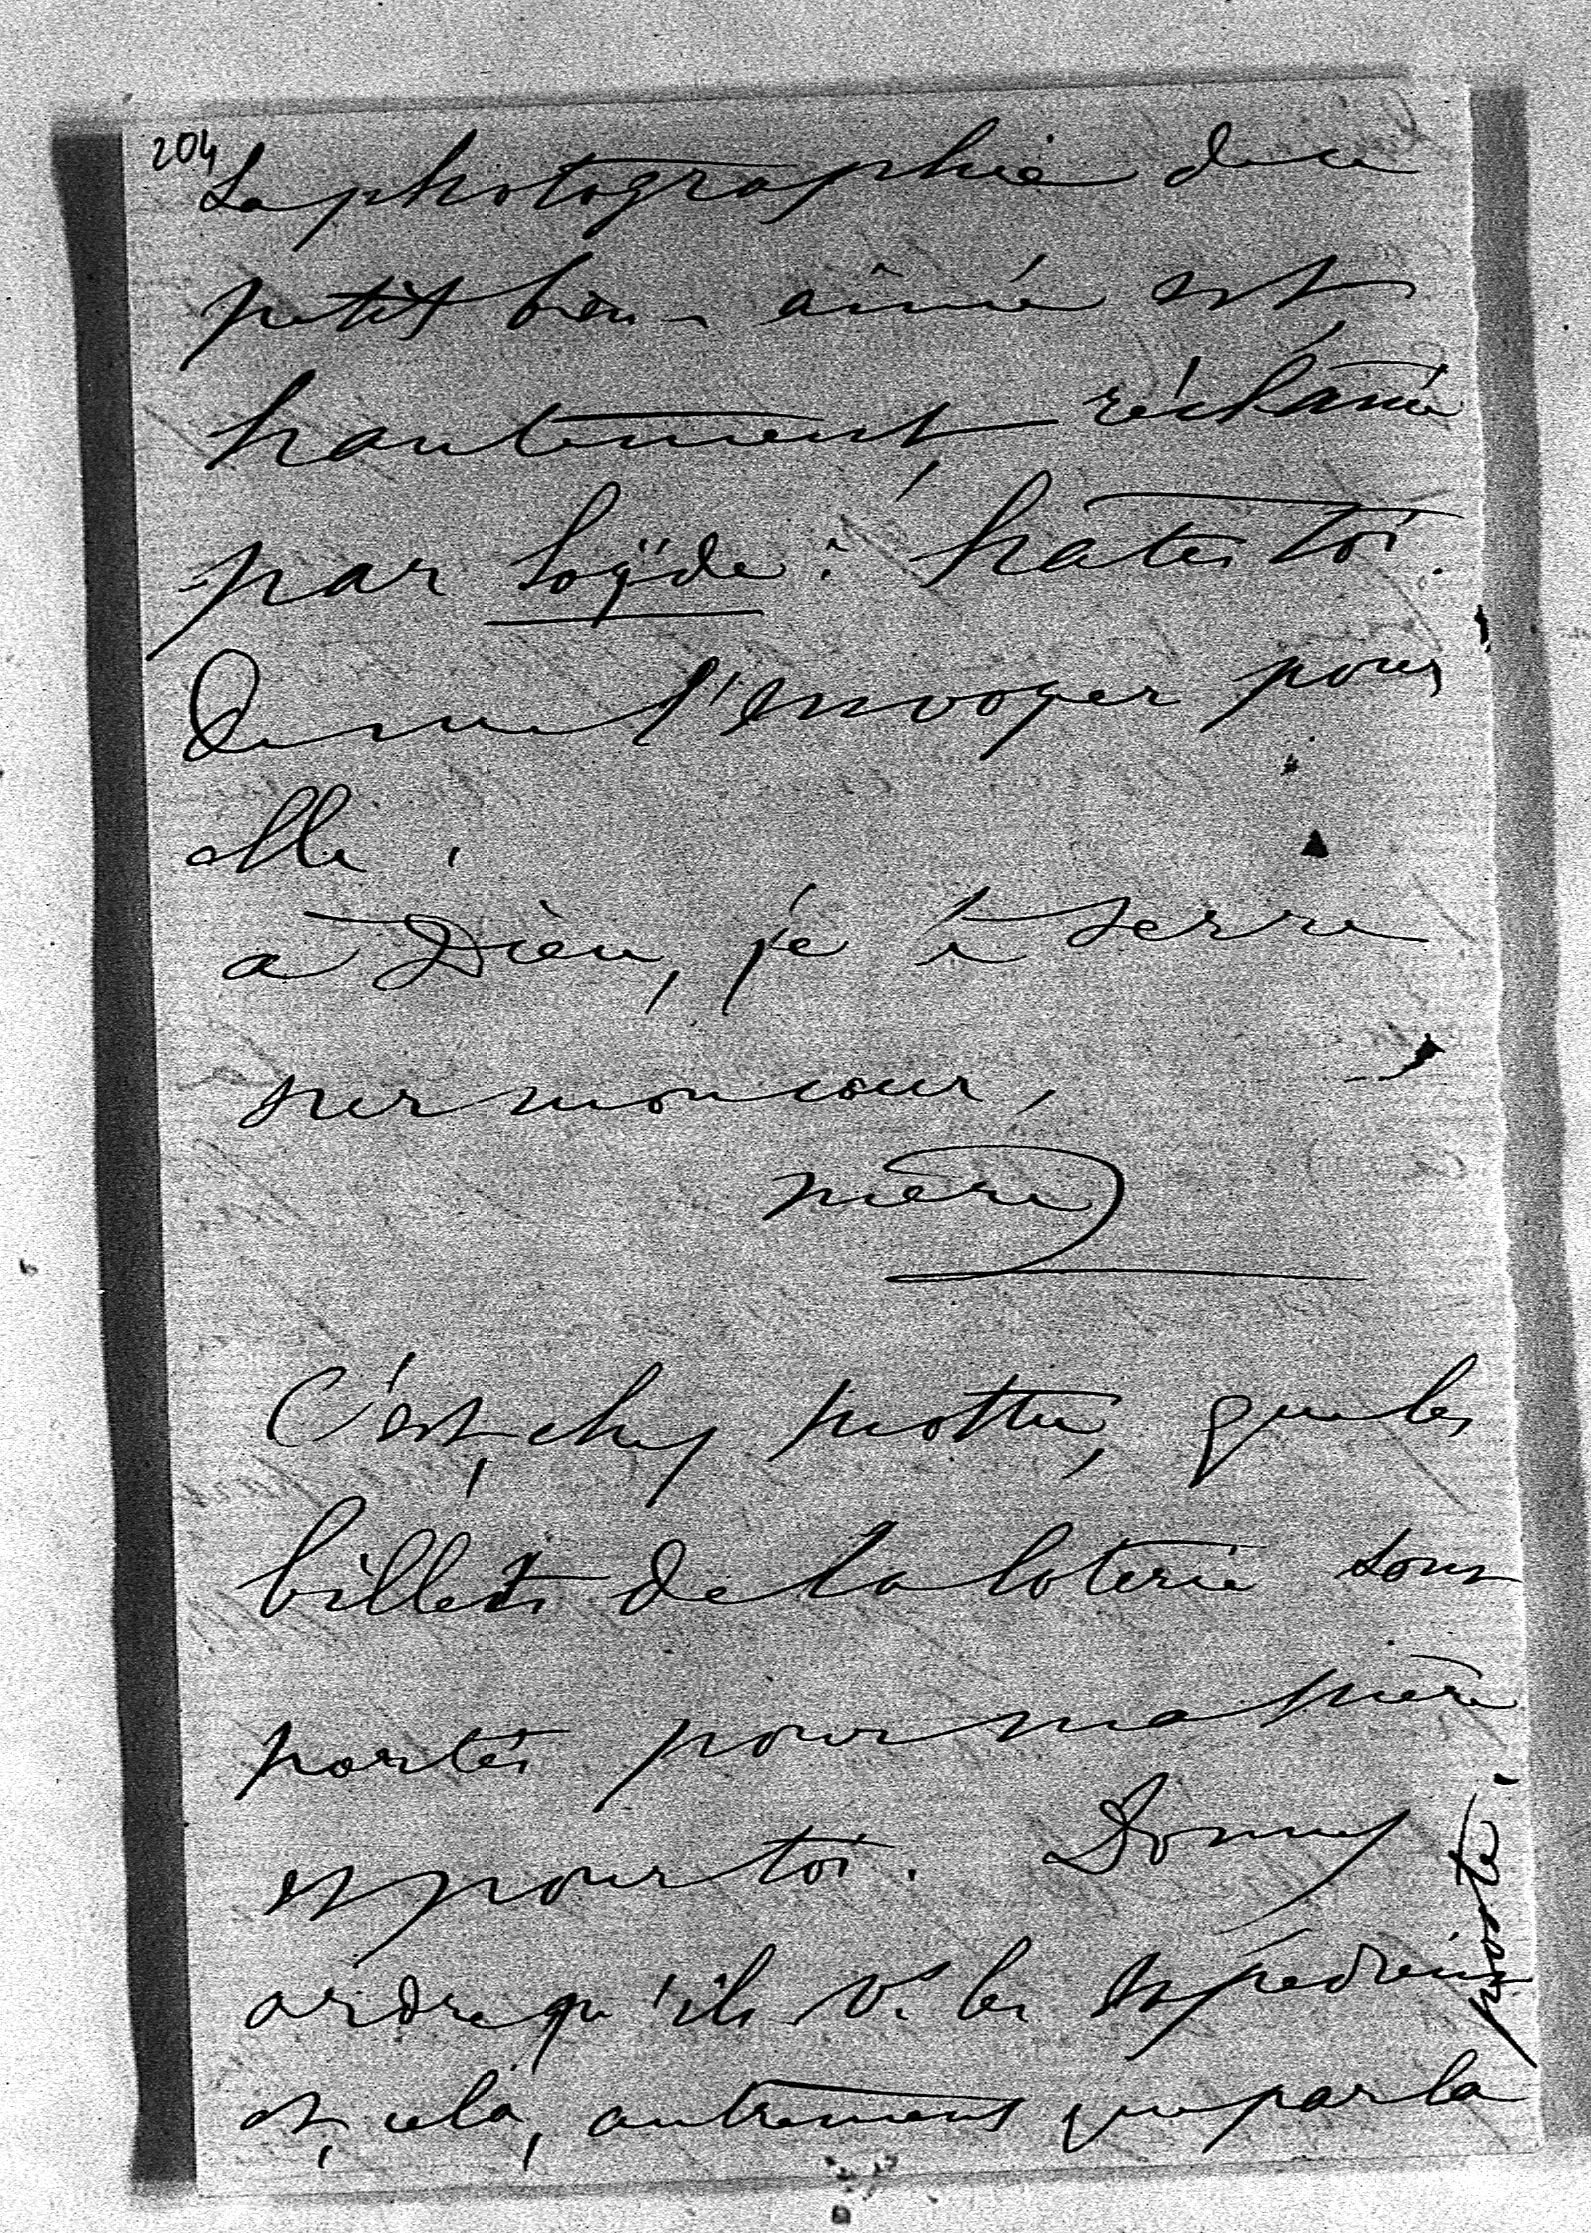 204
La photographie de ce
petit bien-aimé est
hautement réclamée
par Loÿde : hates toi
de me l'envoyer pour
elle.
à Dieu, je te serre
sur mon cœur,
mère
C'est, chez Mottu, que les
billets de la loterie sont
portés pour ma mère
et pour toi. Donnez
ordre qu'ils vs les expédient
et, cela, autrement que par la
poste.